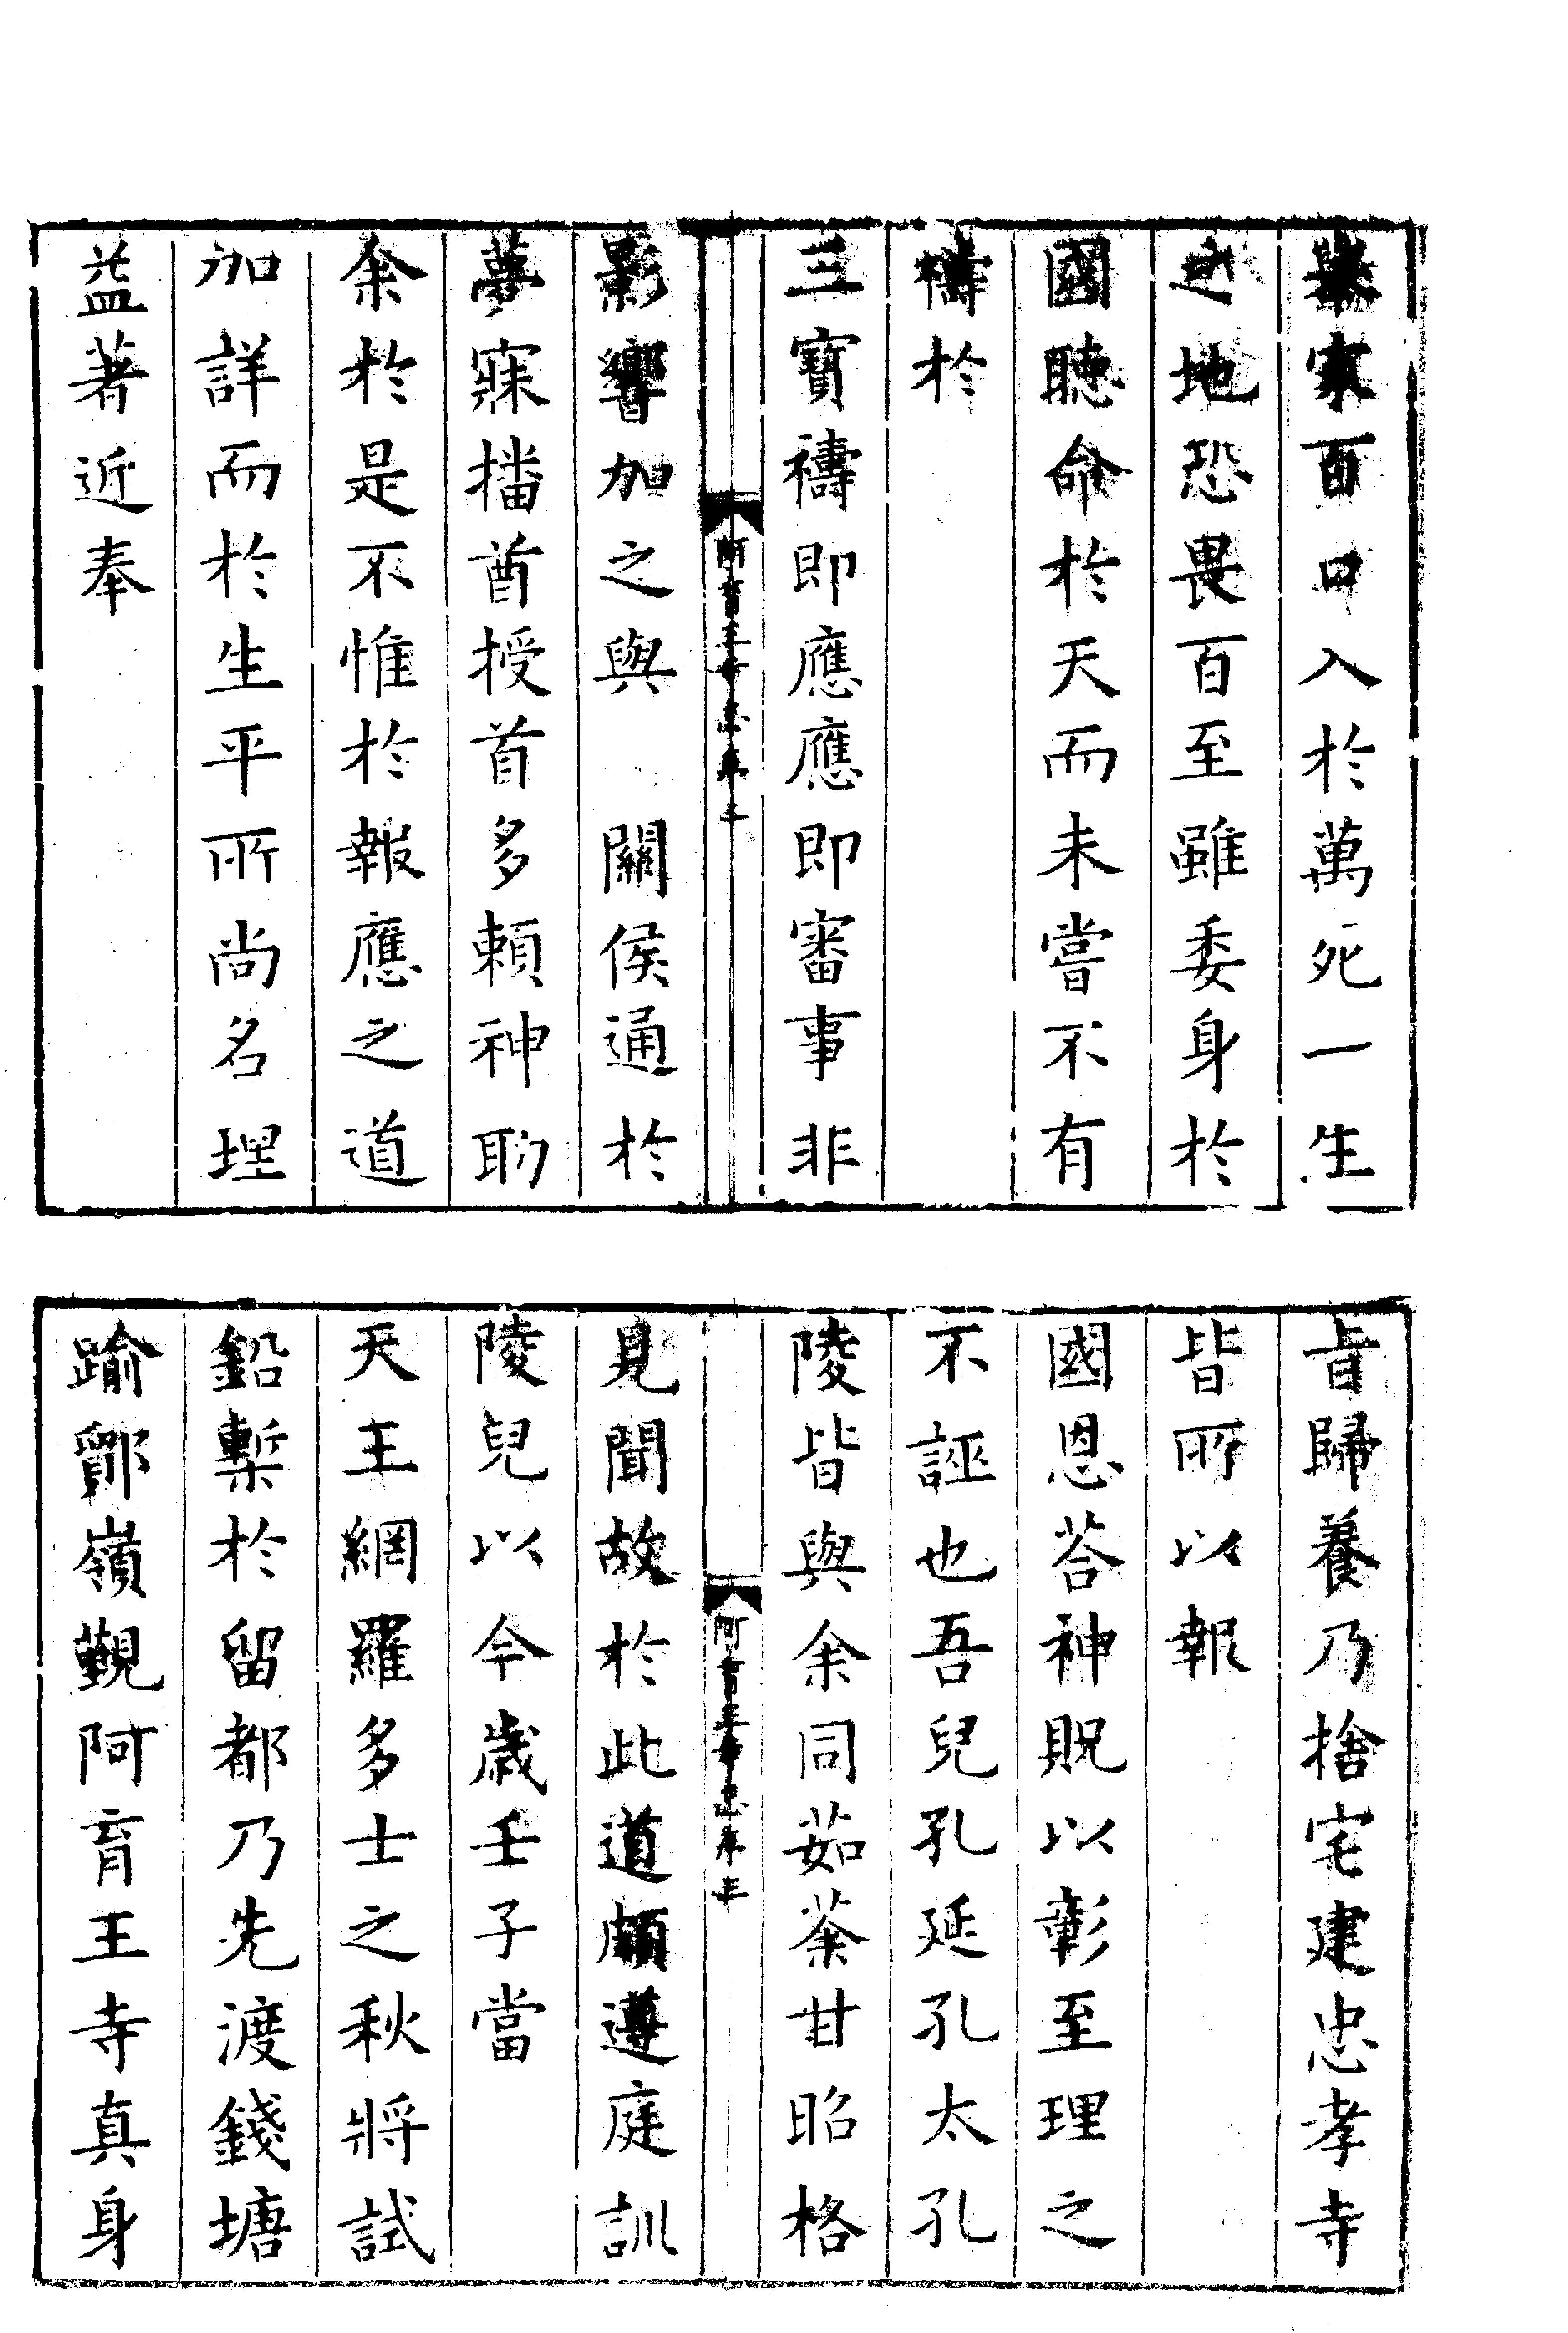 家百口入於萬死一生
之地恐畏百至雖委身於
國聽命於天而未嘗不有
禱於
三寶禱即應應即審事非
阿育王寺志卷三
影響加之與 關侯通於
夢寐播酋授首多賴神助
余於是不惟於報應之道
加詳而於生平所尚名理
益著近奉
旨歸養乃捨宅建忠孝寺
皆所以報
國恩荅神貺以彰至理之
不誣也吾兒孔延孔太孔
陵皆與余同茹荼甘昭格
阿育王寺志卷三
見聞故於此道頗遵庭訓
陵兒以今歲壬子當
天王網羅多士之秋將試
鉛槧於留都乃先渡錢塘
踰鄮嶺覲阿育王寺真身